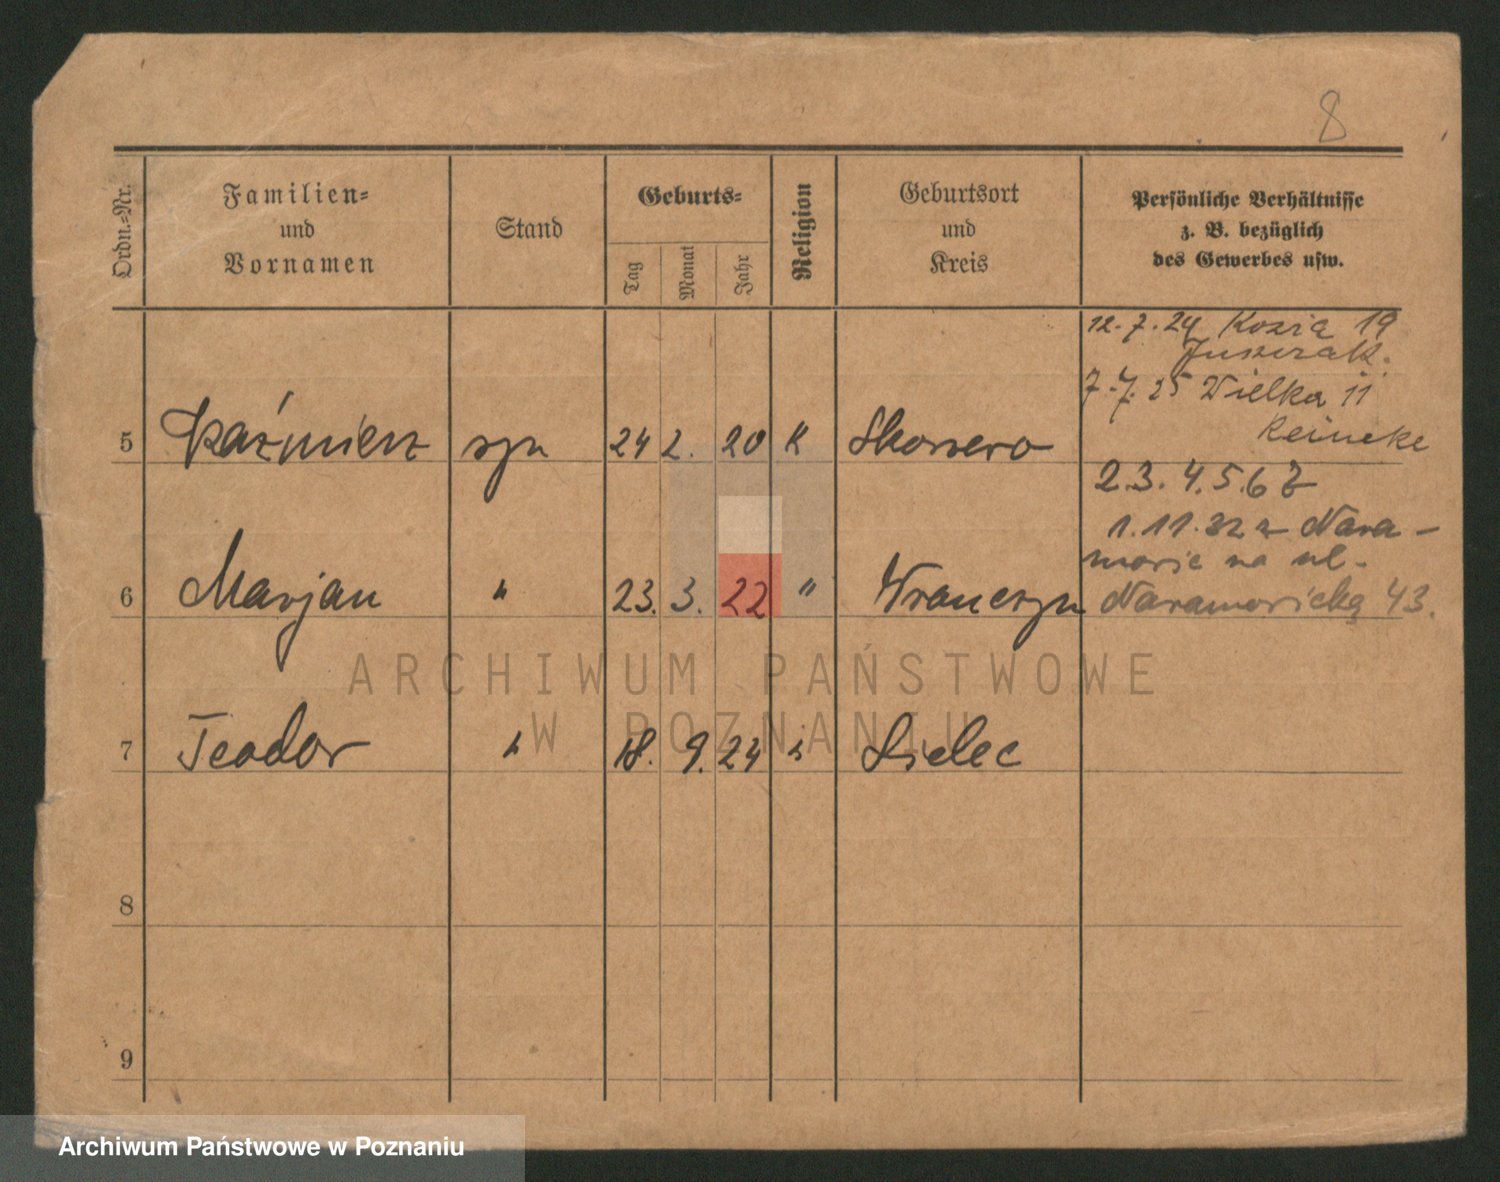 8
Ordn.-Nr.
Familien-
und
Vornamen
Stand
Geburts-
Tag Monat Jahr
Religion
Geburtsort
und
Kreis
Persönliche Verhältnisse
z. B. bezüglich
des Gewerbes usw.
12.7.24 Kozia 19
Juszczak.
7.7.25 Wielka 11
Reineke
5 Kaźmierz syn 24 2. 20 K
2.3.4.5.6 7
1.11.32 w Nara-
mowic na ul.
Naramowicką 43.
6 Marjan " 23. 3. 22 " Wronczyn
7 Teodor " 18. 9. 24 " Sielec
8
9
ARCHIWUM PAŃSTWOWE
W POZNANIU
Archiwum Państwowe w Poznaniu